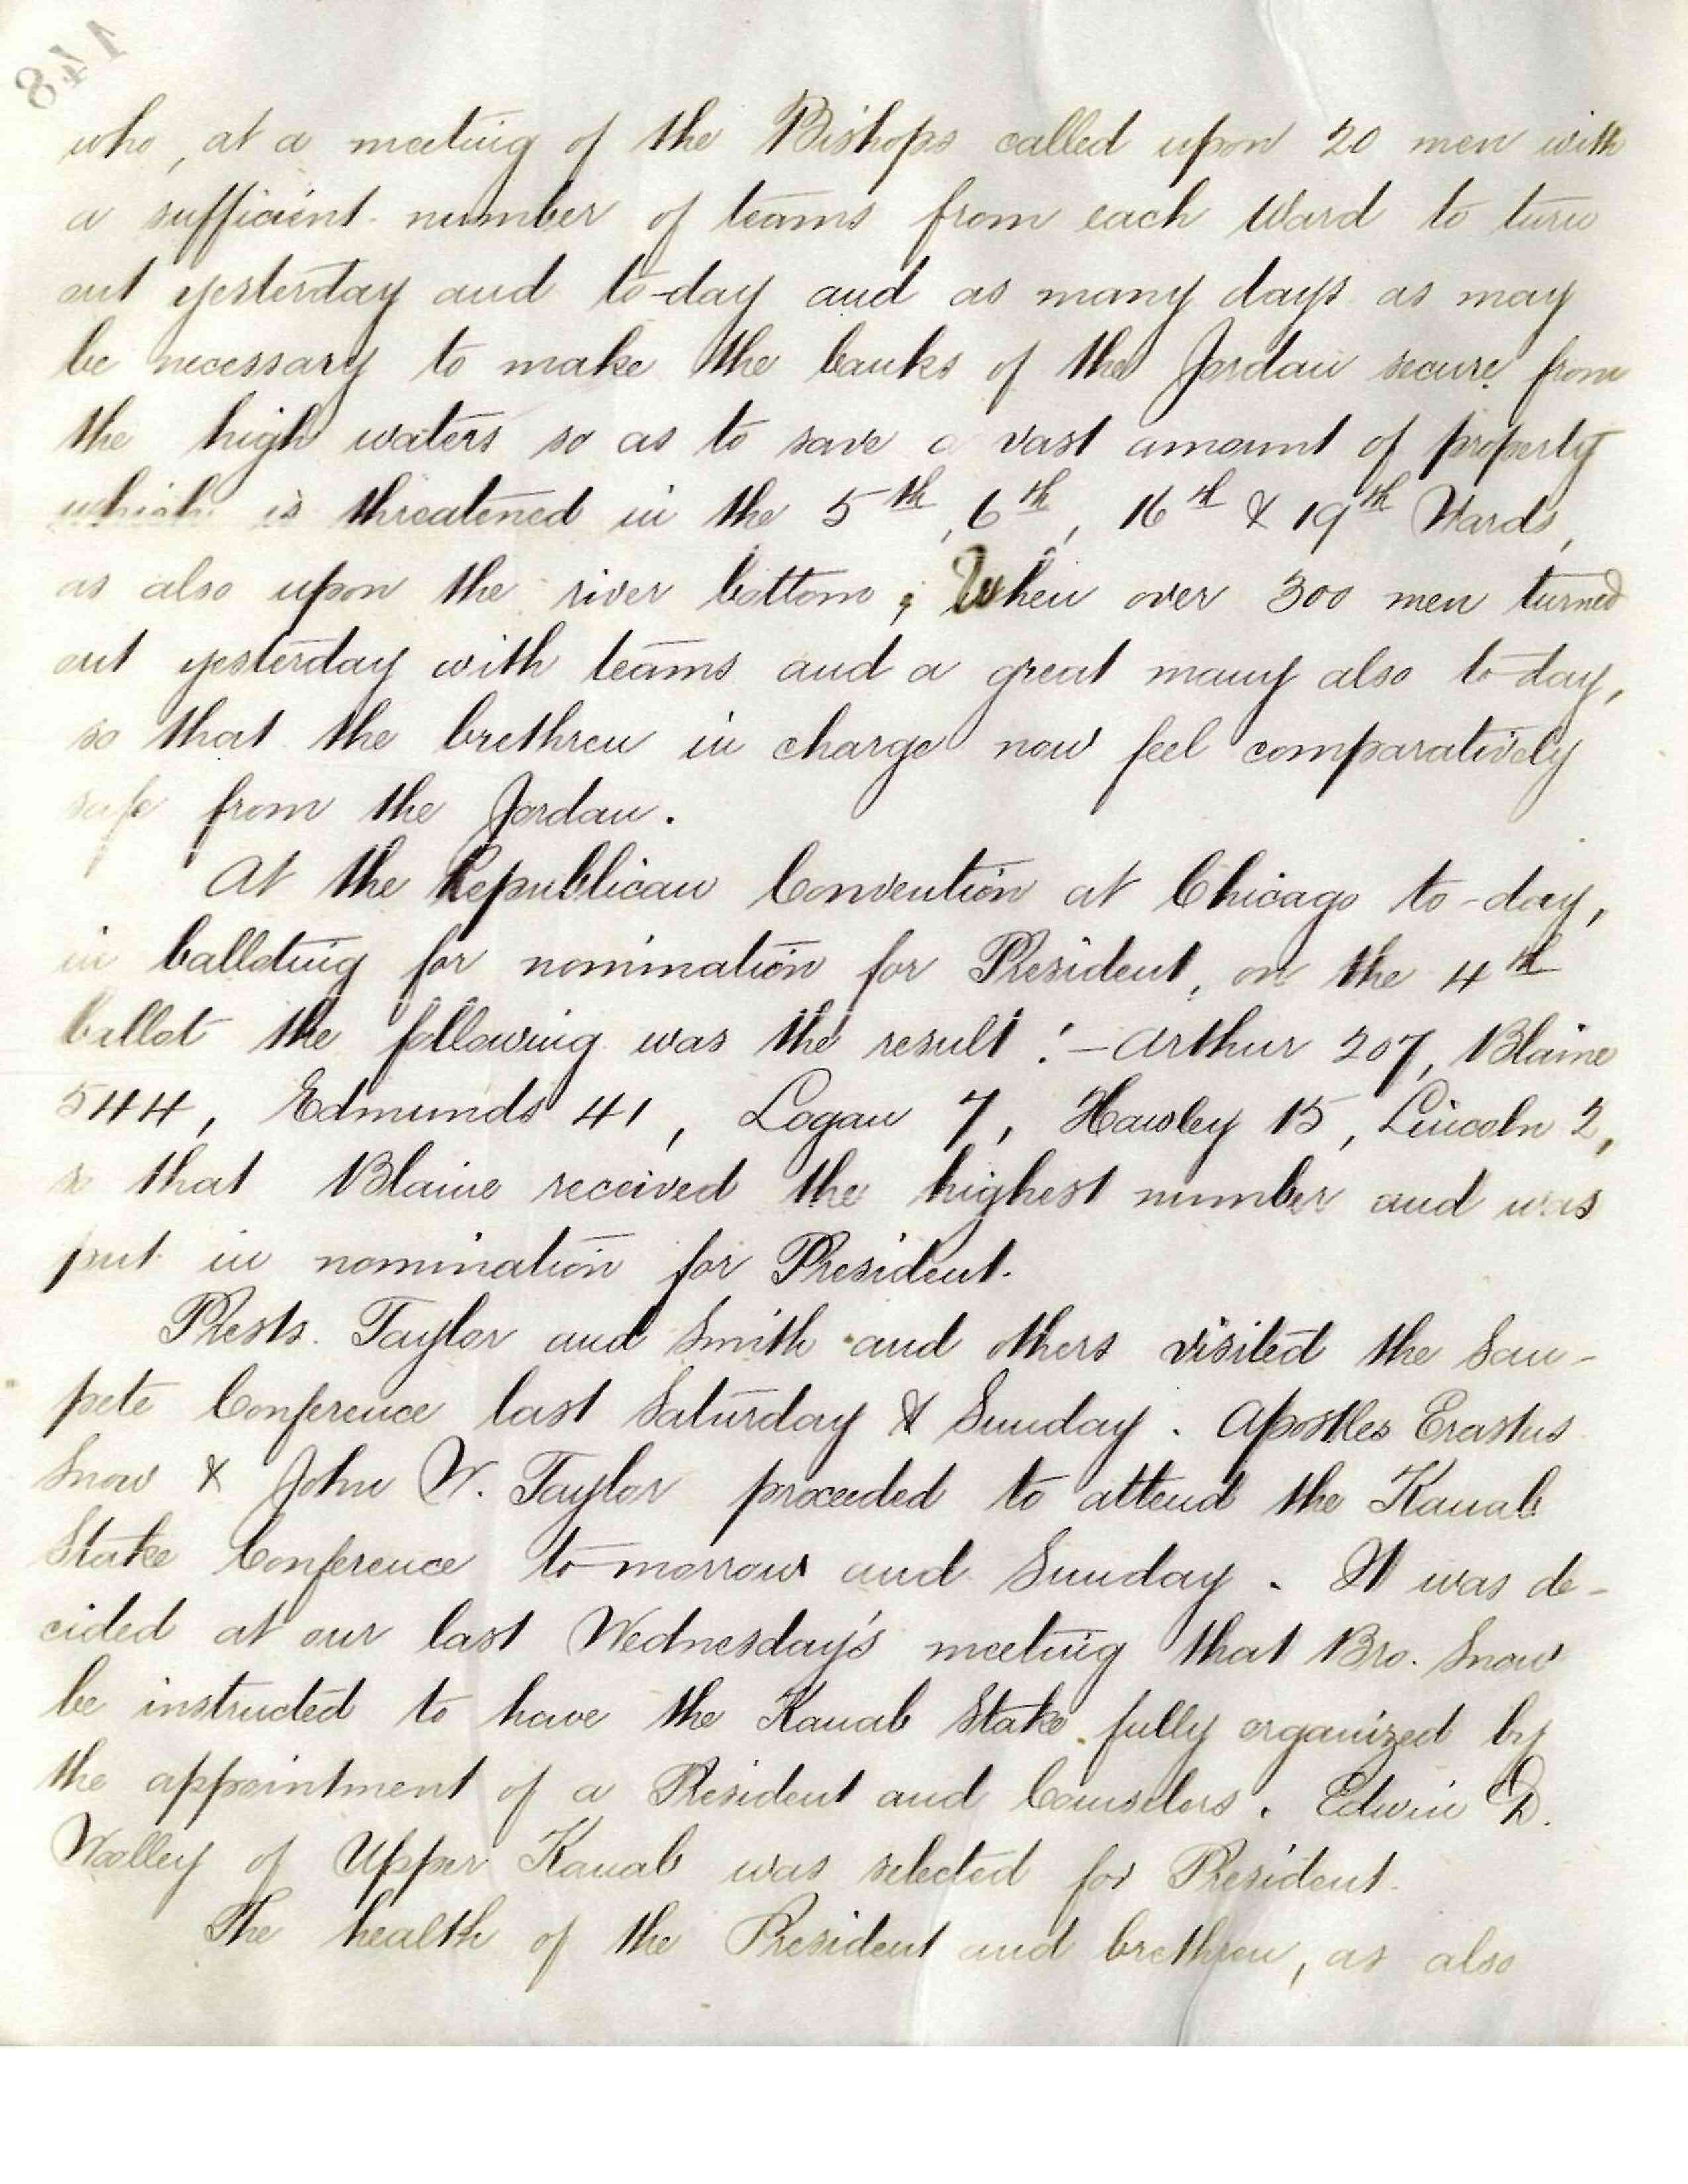 148
who, at a meeting of the Bishops called upon 20 men with
a sufficient number of teams from each Ward to turn
out yesterday and to-day and as many days as may
be necessary to make the banks of the Jordan secure from
the high waters so as to save a vast amount of property
which is threatened in the 5th, 6th, 16th & 19th Wards,
as also upon the river bottom; When over 300 men turned
out yesterday with teams and a great many also to-day,
so that the brethren in charge now feel comparatively
safe from the Jordan.
At the Republican Convention at Chicago to-day,
in balloting for nomination for President, on the 4th
ballot the following was the result:- Arthur 207, Blaine
544, Edmunds 41, Logan 7, Hawley 15, Lincoln 2,
so that Blaine received the highest number and was
put in nomination for President.
Prests. Taylor and Smith and others visited the San-
pete Conference last Saturday & Sunday. Apostles Erastus
Snow & John W. Taylor proceeded to attend the Kanab
Stake Conference to-morrow and Sunday. It was de-
cided at our last Wednesday's meeting that Bro. Snow
be instructed to have the Kanab Stake fully organized by
the appointment of a President and Counselors. Edwin D.
Woolley of Upper Kanab was selected for President.
The health of the President and brethren, as also